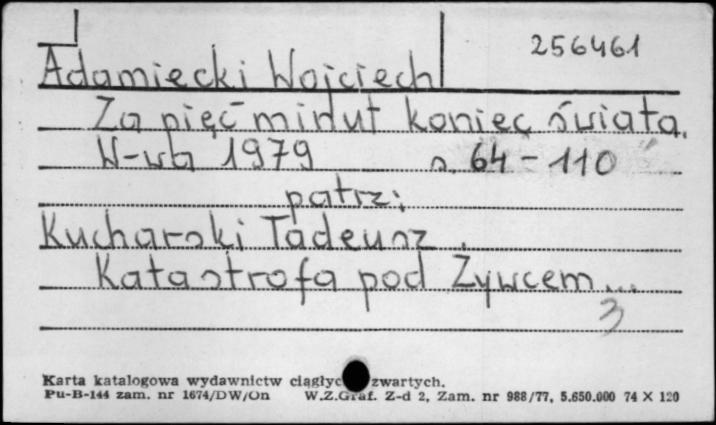 256461
Adamiecki Wojciech
Za pięć minut koniec świata.
W-wa 1979 s. 64-110
patrz:
Kucharski Tadeusz.
Katastrofa pod Żywcem...
3
Karta katalogowa wydawnictw zwartych.
Pu-B-144 zam. nr 1674/DW/On W.Z.Graf. Z-d 2, Zam. nr 988/77, 5.650.000 74 X 120